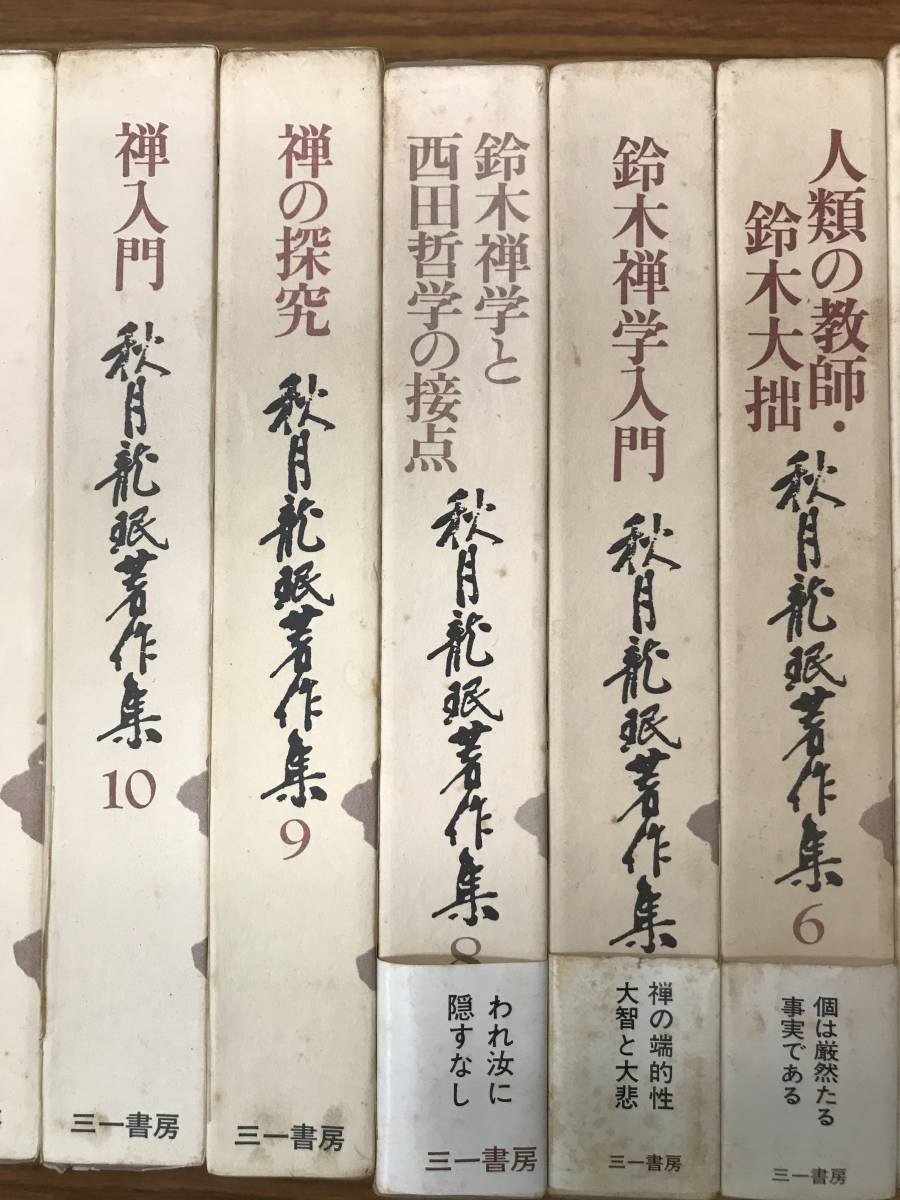 禅入門
秋月龍珉著作集
10
三一書房
禅の探究
秋月龍珉著作集
9
三一書房
鈴木禅学と
西田哲学の接点
秋月龍珉著作集
8
われ汝に
隠すなし
三一書房
鈴木禅学入門
秋月龍珉著作集
禅の端的性
大智と大悲
三一書房
人類の教師・
鈴木大拙
秋月龍珉著作集
6
個は厳然たる
事実である
三一書房